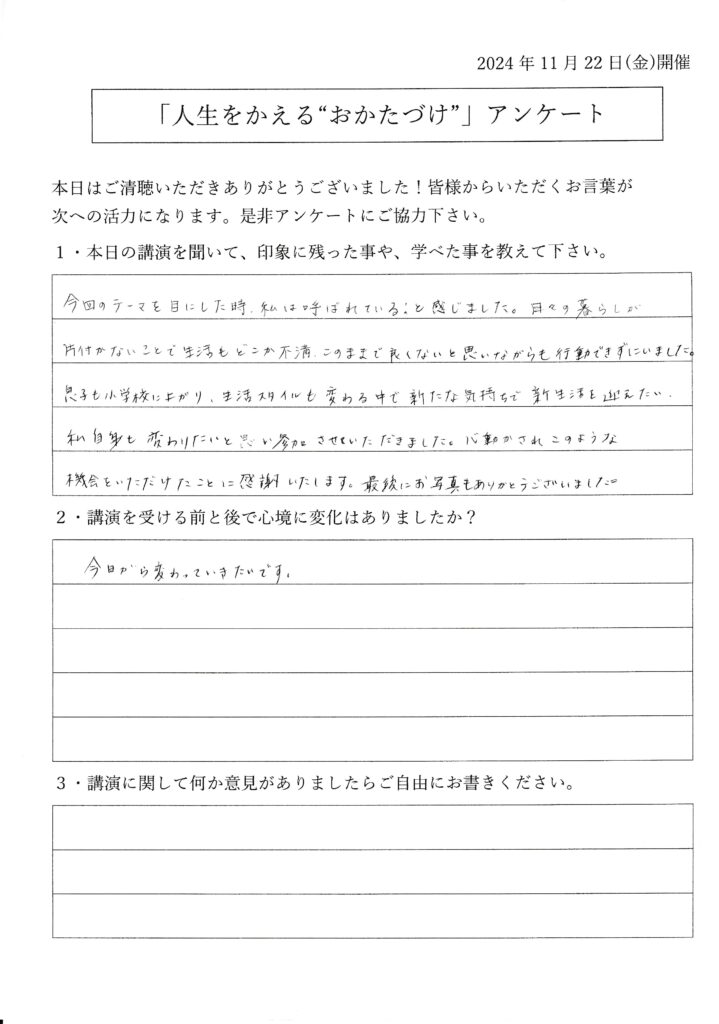 2024 年 11 月 22 日(金)開催
「人生をかえる“おかたづけ”」アンケート
本日はご清聴いただきありがとうございました！皆様からいただくお言葉が
次への活力になります。是非アンケートにご協力下さい。
１・本日の講演を聞いて、印象に残った事や、学べた事を教えて下さい。
今回のテーマを目にした時、私は呼ばれている！と感じました。日々の暮らしが
片付かないことで生活もどこか不満、このままで良くないと思いながらも行動できずにいました。
息子も小学校に上がり、生活スタイルも変わる中で新たな気持ちで新生活を迎えたい、
私自身も変わりたいと思い参加させていただきました。心動かされこのような
機会をいただけたことに感謝いたします。最後にお写真もありがとうございました。
２・講演を受ける前と後で心境に変化はありましたか？
今日から変わっていきたいです。
３・講演に関して何か意見がありましたらご自由にお書きください。